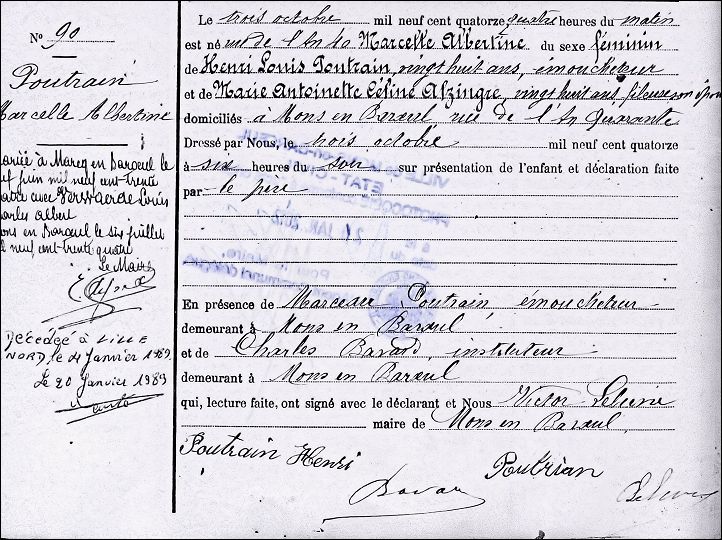 N° 90
Poutrain
Marcelle Albertine
mariée à Marcq en Baroeul le
juin mil neuf cent trente
avec Verwaerde Louis
Charles Albert
Mons en Baroeul le six juillet
mil neuf cent trente quatre
Le Maire
Décédée à LILLE
NORD le 4 Janvier 1989
Le 20 Janvier 1989
Le trois octobre mil neuf cent quatorze, quatre heures du matin
est né rue de l'An 40 Marcelle Albertine du sexe féminin
de Henri Louis Poutrain, vingt huit ans, émoucheteur
et de Marie Antoinette Céline Alzingre, vingt huit ans, fileuse son épouse
domiciliés à Mons en Baroeul, rue de l'An Quarante
Dressé par Nous, le trois octobre mil neuf cent quatorze
à six heures du soir sur présentation de l'enfant et déclaration faite
par le père
En présence de Marceau Poutrain émoucheteur
demeurant à Mons en Baroeul
et de Charles Bavard, instituteur
demeurant à Mons en Baroeul
qui, lecture faite, ont signé avec le déclarant et Nous Victor Lelievre
maire de Mons en Baroeul
Poutrain Henri
Poutrian